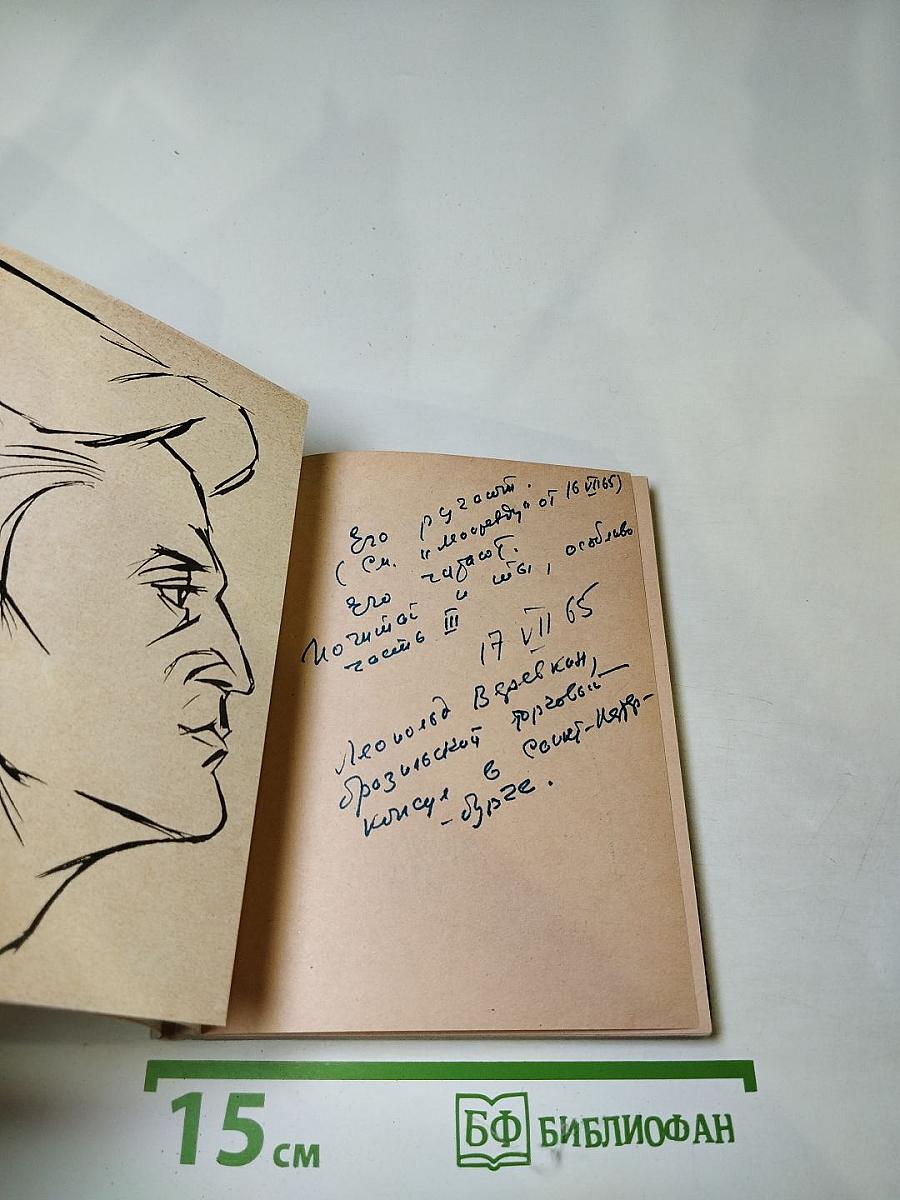 Его ругают.
(См. "Мосправду" от 16 VII 65)
Его читают.
Почитай и ты, особливо
часть III
17 VII 65
Леопольд Веревкин,
бразильский торговый
консул в Санкт-Петер-
-бурге.
15 см
БФ БИБЛИОФАН